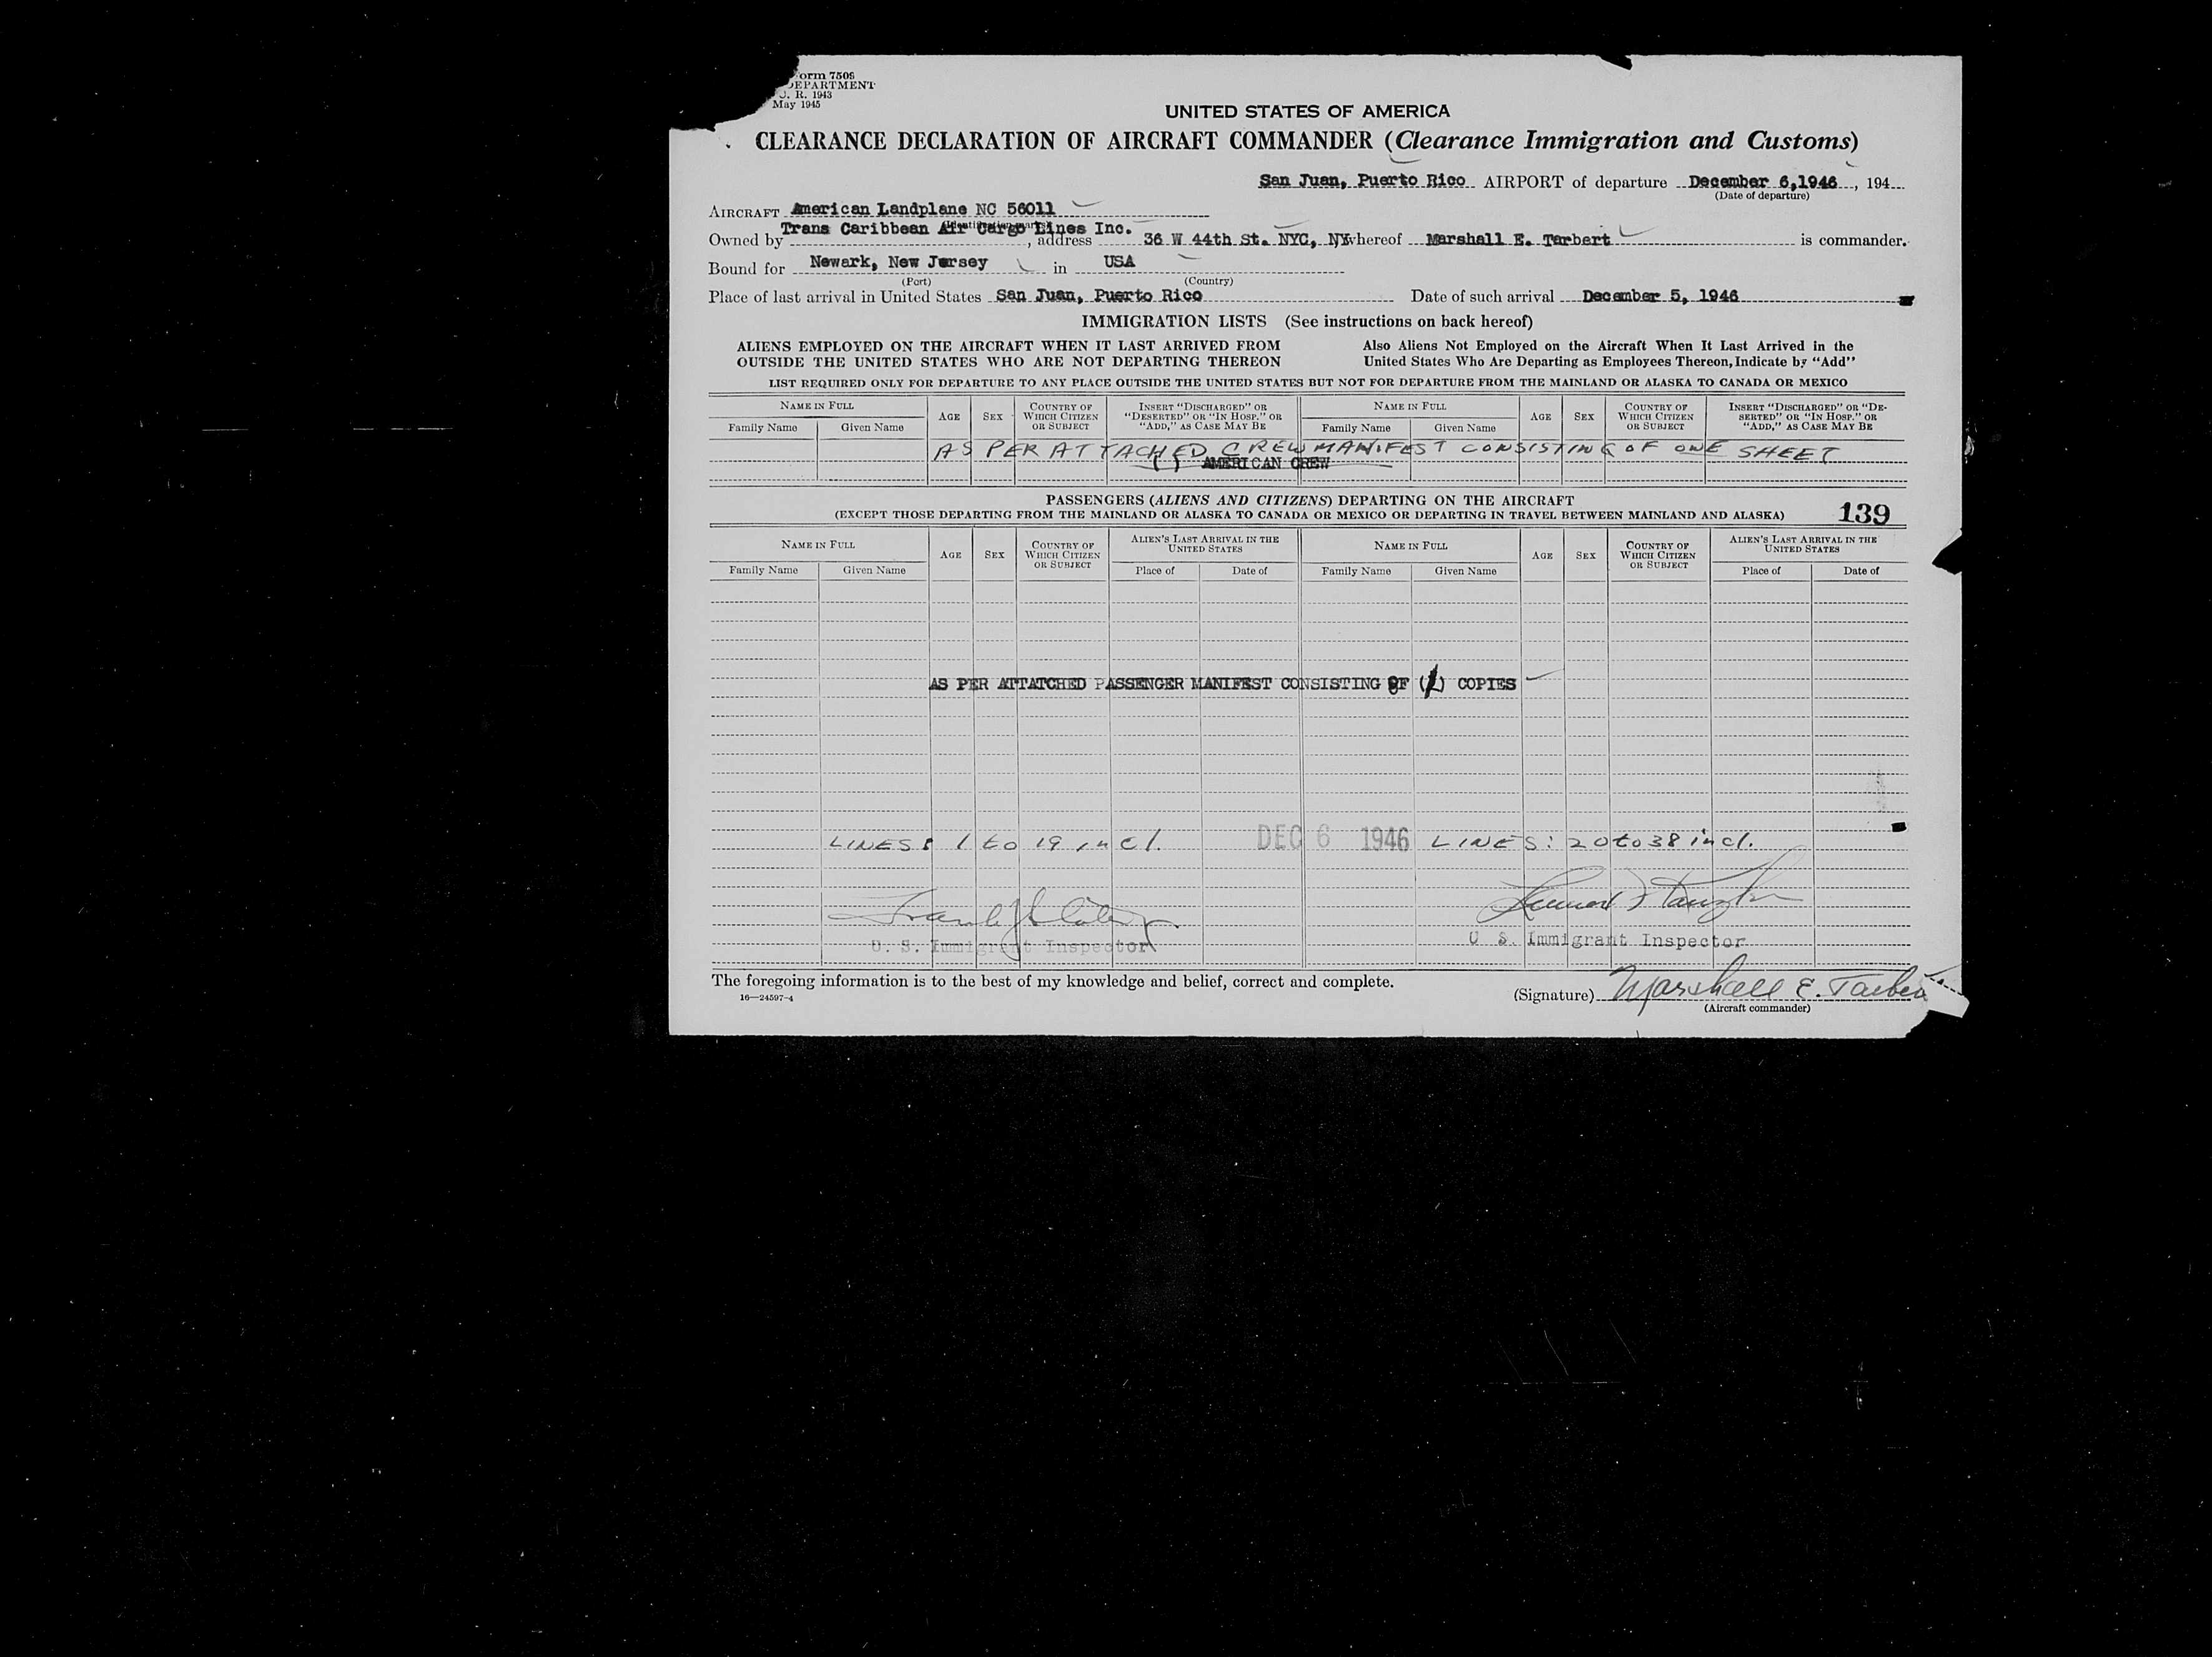 orm 7509
DEPARTMENT
J. R. 1943
May 1945
UNITED STATES OF AMERICA
CLEARANCE DECLARATION OF AIRCRAFT COMMANDER (Clearance Immigration and Customs)
San Juan, Puerto Rico AIRPORT of departure December 6,1946, 194
(Date of departure)
AIRCRAFT American Landplane NC 56011
Owned by Trans Caribbean Air Cargo Lines Inc., address 36 W 44th St. NYC, NY whereof Marshall E. Tarbert is commander.
Bound for Newark, New Jersey in USA
(Port) (Country)
Place of last arrival in United States San Juan, Puerto Rico Date of such arrival December 5, 1946
IMMIGRATION LISTS (See instructions on back hereof)
ALIENS EMPLOYED ON THE AIRCRAFT WHEN IT LAST ARRIVED FROM Also Aliens Not Employed on the Aircraft When It Last Arrived in the
OUTSIDE THE UNITED STATES WHO ARE NOT DEPARTING THEREON United States Who Are Departing as Employees Thereon, Indicate by "Add"
LIST REQUIRED ONLY FOR DEPARTURE TO ANY PLACE OUTSIDE THE UNITED STATES BUT NOT FOR DEPARTURE FROM THE MAINLAND OR ALASKA TO CANADA OR MEXICO
NAME IN FULL AGE SEX COUNTRY OF WHICH CITIZEN OR SUBJECT INSERT "DISCHARGED" OR "DESERTED" OR "IN HOSP." OR "ADD," AS CASE MAY BE NAME IN FULL AGE SEX COUNTRY OF WHICH CITIZEN OR SUBJECT INSERT "DISCHARGED" OR "DESERTED" OR "IN HOSP." OR "ADD," AS CASE MAY BE
Family Name Given Name Family Name Given Name
AS PER ATTACHED CREW MANIFEST CONSISTING OF ONE SHEET
( ) AMERICAN CREW
PASSENGERS (ALIENS AND CITIZENS) DEPARTING ON THE AIRCRAFT
(EXCEPT THOSE DEPARTING FROM THE MAINLAND OR ALASKA TO CANADA OR MEXICO OR DEPARTING IN TRAVEL BETWEEN MAINLAND AND ALASKA) 139
NAME IN FULL AGE SEX COUNTRY OF WHICH CITIZEN OR SUBJECT ALIEN'S LAST ARRIVAL IN THE UNITED STATES NAME IN FULL AGE SEX COUNTRY OF WHICH CITIZEN OR SUBJECT ALIEN'S LAST ARRIVAL IN THE UNITED STATES
Family Name Given Name Place of Date of Family Name Given Name Place of Date of
AS PER ATTATCHED PASSENGER MANIFEST CONSISTING OF ( ) COPIES
LINES: 1 to 19 incl. DEC 6 1946 LINES: 20 to 38 incl.
U. S. Immigrant Inspector U. S. Immigrant Inspector
The foregoing information is to the best of my knowledge and belief, correct and complete.
16—24597-4
(Signature) Marshall E. Tarbert
(Aircraft commander)